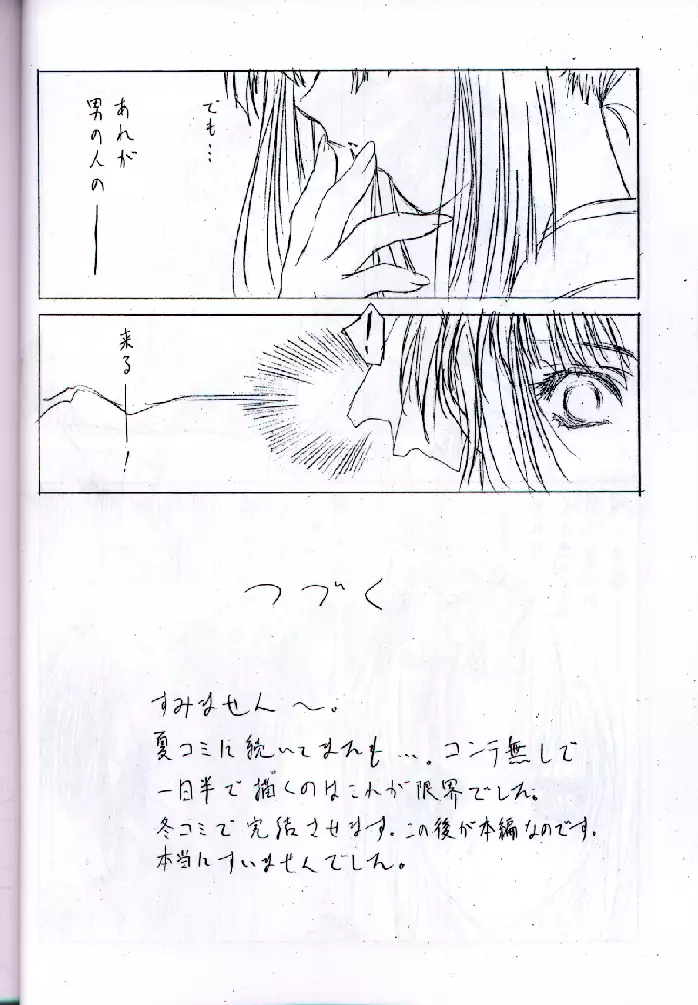 でも…
あれが
男の人の──
!
来る──!
つづく
すみません〜。
夏コミに続いてまたも…。コンテ無しで
一日半で描くのはこれが限界でした。
冬コミで完結させます。この後が本編なのです。
本当にすいませんでした。